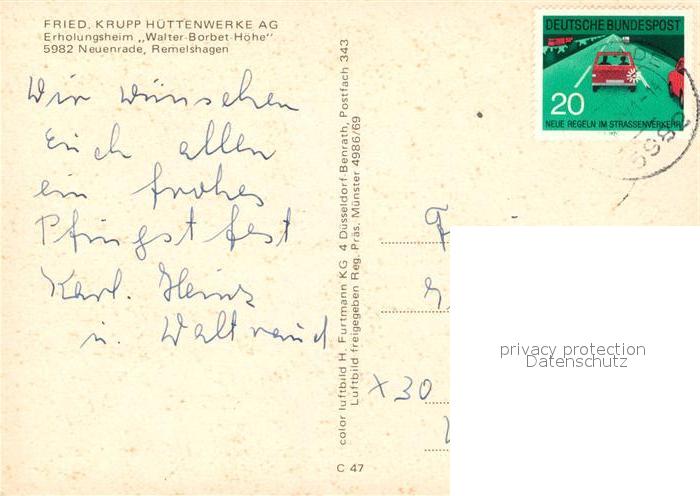 FRIED. KRUPP HÜTTENWERKE AG
Erholungsheim „Walter-Borbet-Höhe"
5982 Neuenrade, Remelshagen
Wir wünschen
Euch allen
ein frohes
Pfingstfest
Karl. Heinz
u. Waltraud
color luftbild H. Furtmann KG 4 Düsseldorf-Benrath, Postfach 343
Luftbild freigegeben Reg. Präs. Münster 4986/69
C 47
DEUTSCHE BUNDESPOST
20
NEUE REGELN IM STRASSENVERKEHR
X 30
privacy protection
Datenschutz